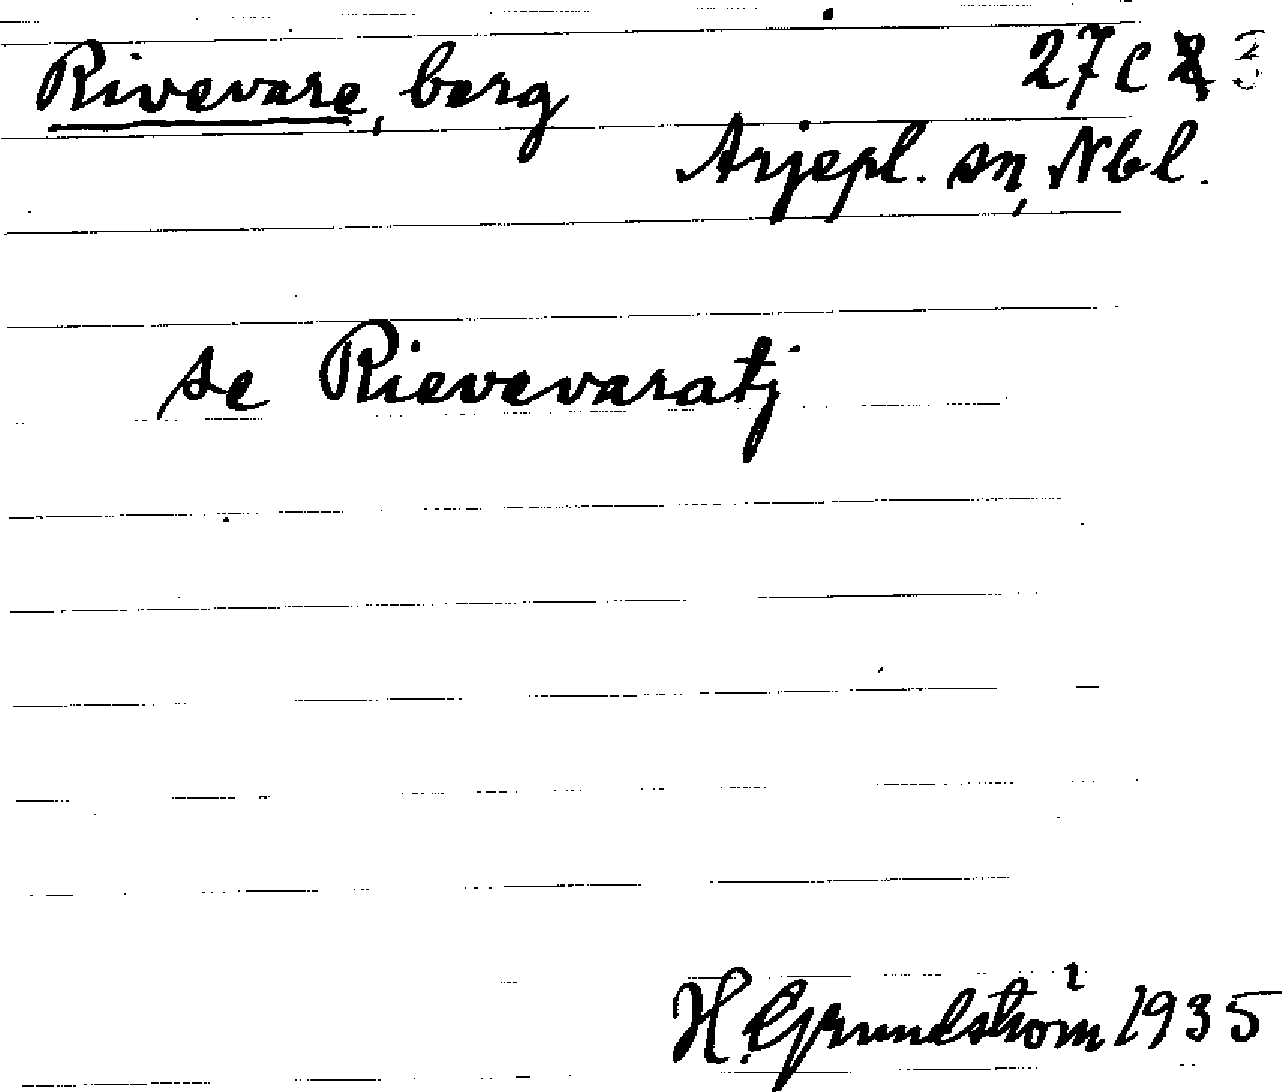 Rivevare, berg 27 C 3
Arjepl. sn, Nbl.
se Rievevaratj
H. Grundström 1935